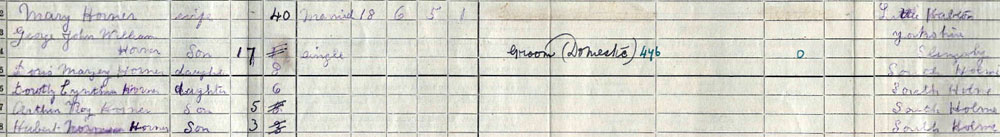 2 Mary Horner wife 40 Married 18 6 5 1 Little Habton
3 George John William Yorkshire
4 Horner Son 17 Single Groom (Domestic) 446 0 Slingsby
5 Doris Mary Horner daughter 8 South Holme
6 Dorothy Cynthia Horner daughter 6 South Holme
7 Arthur Roy Horner Son 5 South Holme
8 Herbert Norman Horner Son 3 South Holme